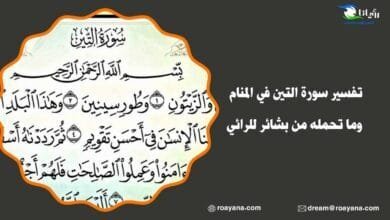 رؤيانا
سورة التين
بسم الله الرحمن الرحيم
والزيتون ١ وطور سينين ٢ وهذا البلد ا
نا الإنسان في أحسن تقويم ٤ ثم رددناه أس
ءامنوا وعملوا الصالحات فلهم أج
تفسير سورة التين في المنام
وما تحمله من بشائر للرائي
roayana.com
dream@roayana.com